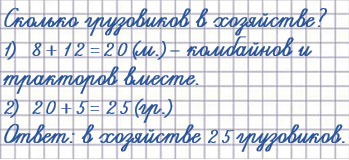 Сколько грузовиков в хозяйстве?
1) 8+12=20(м.)– комбайнов и
тракторов вместе.
2) 20+5=25(гр.)
Ответ: в хозяйстве 25 грузовиков.